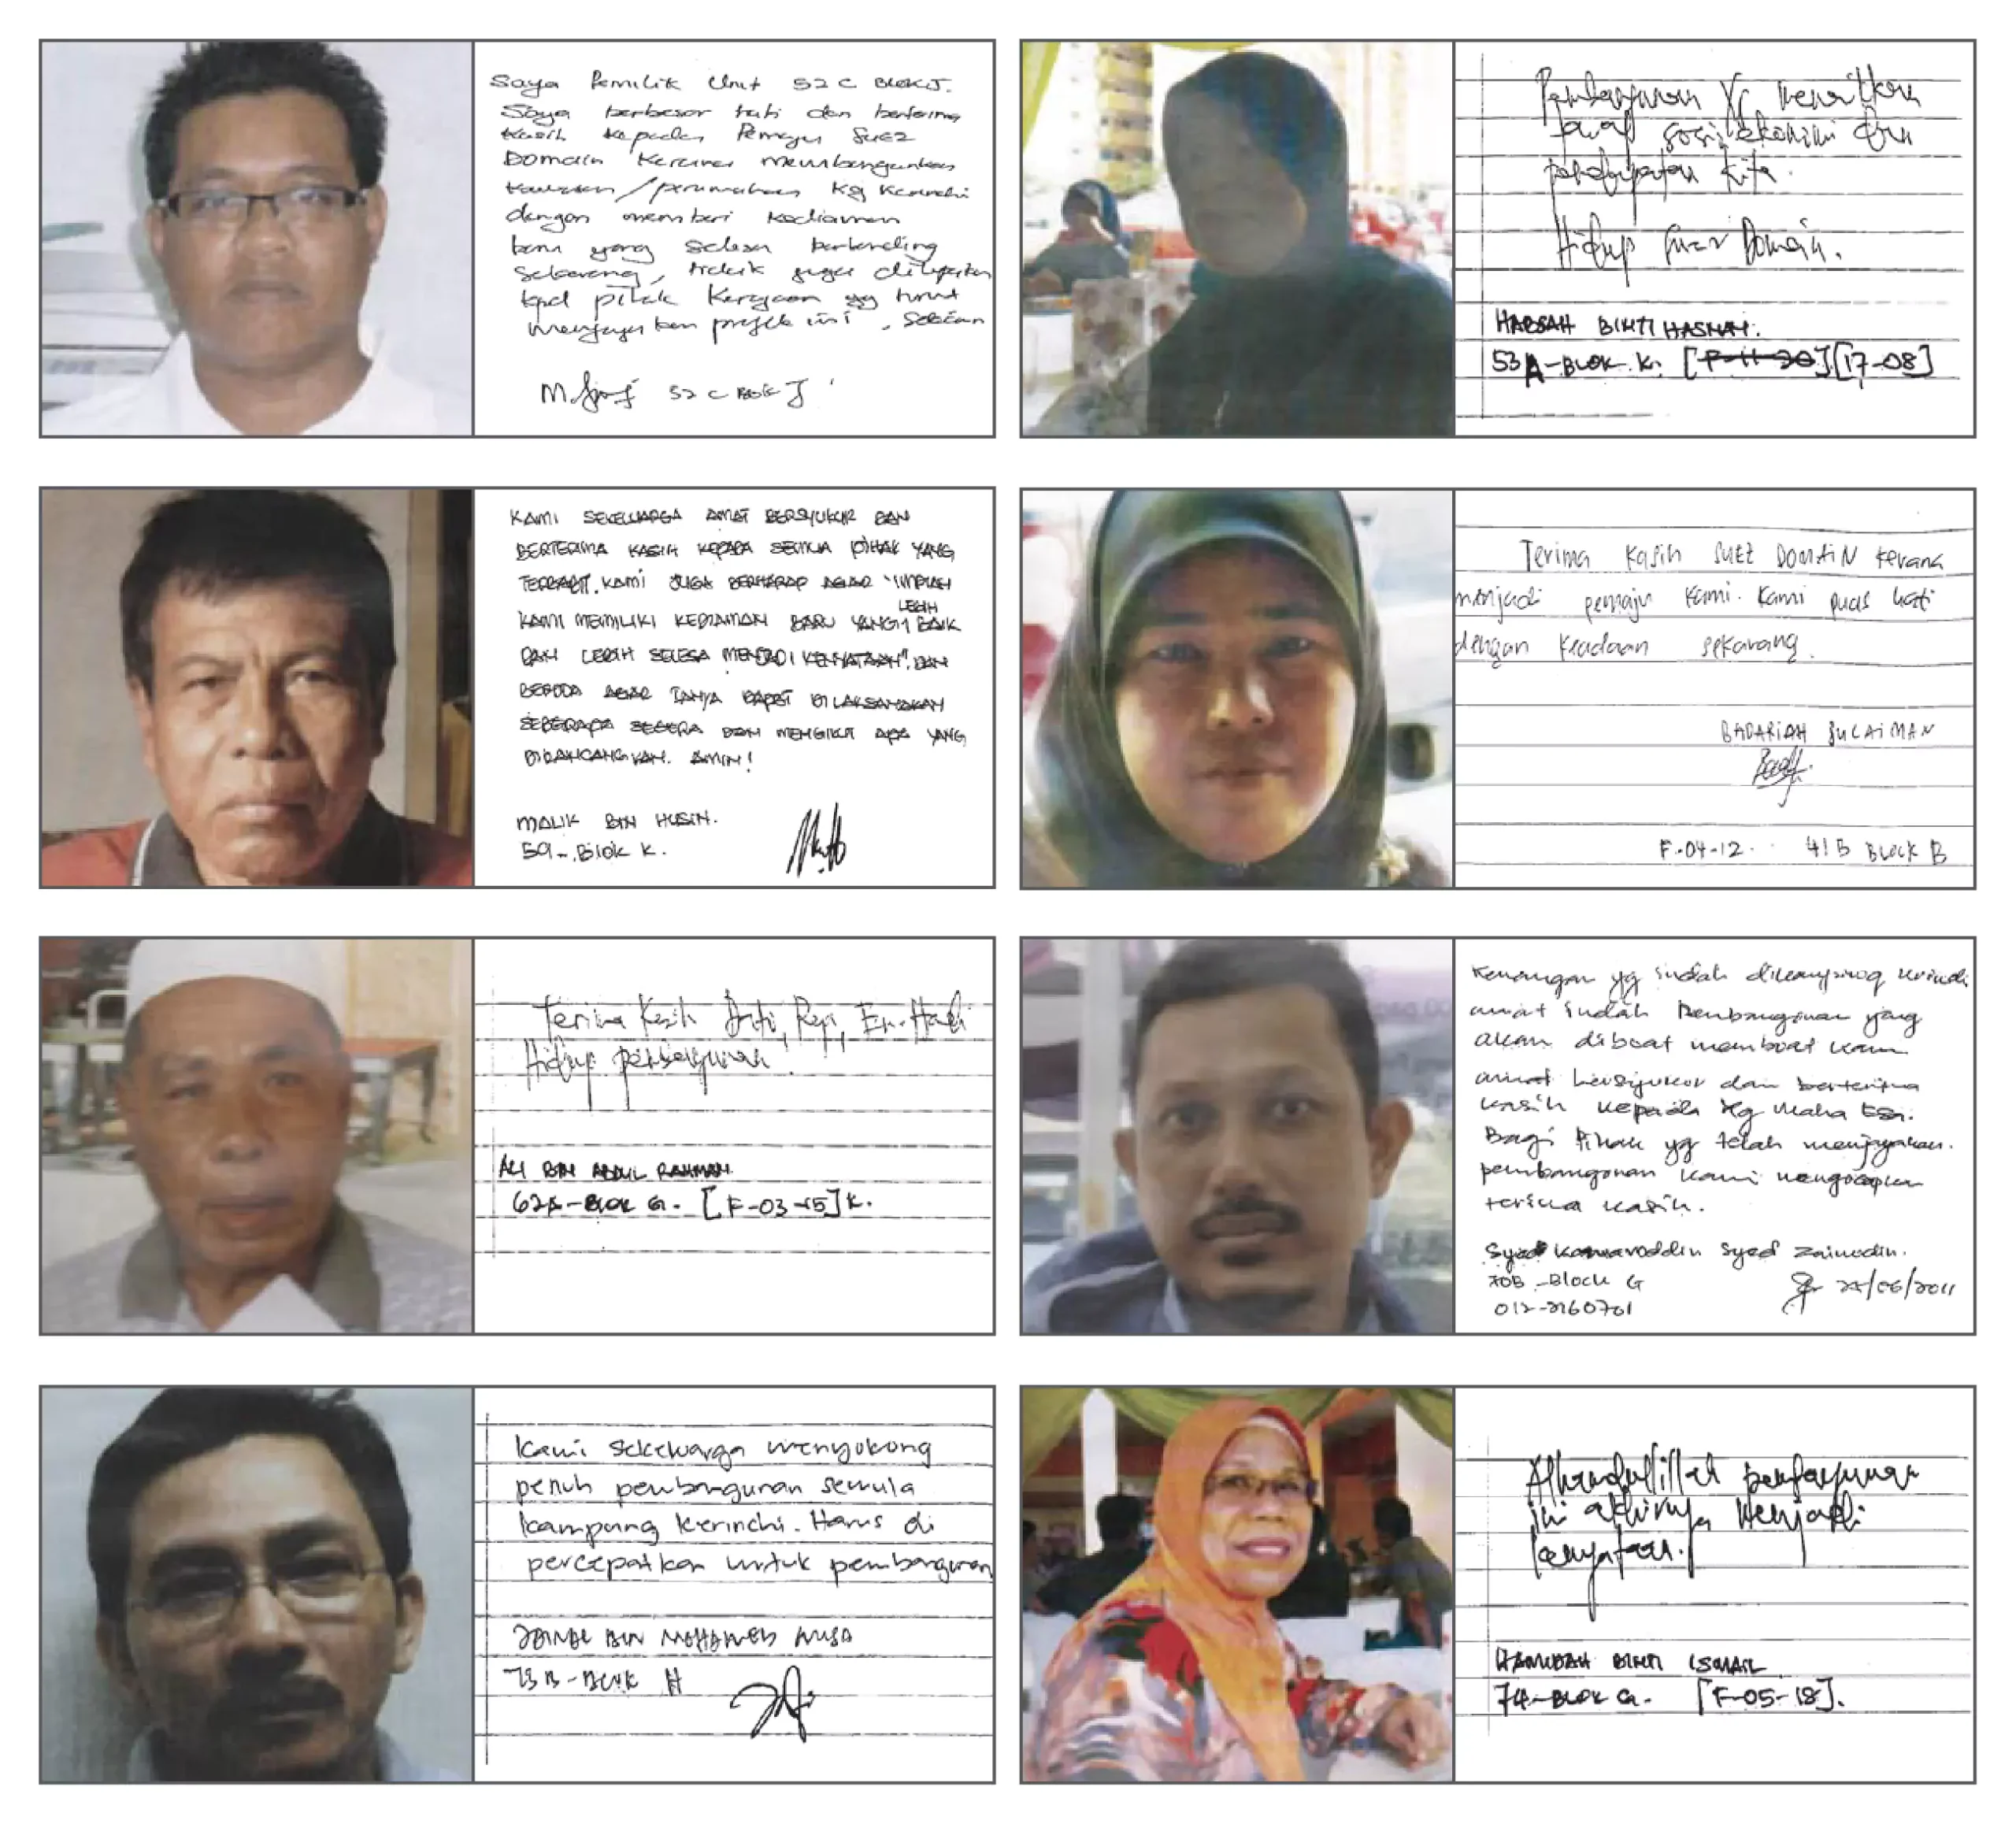 Saya Pemilik Unit 52 C Blok J.
Saya berbesar hati dan berterima
kasih kepada Pemaju Suez
Domain kerana membangunkan
kawasan / perumahan Kg Kerinchi
dengan memberi kediaman
baru yang selesa berbanding
sekarang, tidak juga dilupakan
kpd pihak Kerajaan yg turut
menjayakan projek ini, sekian
52 C Blok J
Pembangunan yg menaikkan
taraf sosioekonomi dan
pendapatan kita.
Hidup Suez Domain.
HABSAH BINTI HASHIM.
53A-BLOK K. [F-11-20] [17-08]
KAMI SEKELUARGA AMAT BERSYUKUR DAN
BERTERIMA KASIH KEPADA SEMUA PIHAK YANG
TERBABIT. KAMI JUGA BERHARAP AGAR "IMPIAN
KAMI MEMILIKI KEDIAMAN BARU YANG LEBIH BAIK
DAN LEBIH SELESA MENJADI KENYATAAN". DAN
BERDOA AGAR IANYA DAPAT DILAKSANAKAN
SEBERAPA SEGERA DAN MENGIKUT APA YANG
DIRANCANGKAN. AMIN!
MALIK BIN HUSIN.
59-. Blok K.
Terima Kasih SUEZ DOMAIN kerana
menjadi pemaju kami. Kami puas hati
dengan keadaan sekarang.
BADARIAH SULAIMAN
F-04-12. 41B Block B
Terima Kasih
Hidup pembangunan.
ALI BIN ABDUL RAHMAN.
62A-BLOK G. [F-03-15] K.
Kenangan yg indah dikampung krinchi
amat indah Pembangunan yang
akan dibuat membuat kami
amat bersyukur dan berterima
kasih kepada Yg Maha Esa.
Bagi Pihak yg telah menjayakan
pembangunan kami mengucapkan
terima kasih.
Syed Kamaroddin Syed Zainudin.
70B-Block G
012-2160701 25/06/2011
Kami sekeluarga menyokong
penuh pembangunan semula
kampung kerinchi. Harus di
percepatkan untuk pembangunan
ZAINAL BIN MOHAMED NUSA
73B-BLOK H
Alhamdulillah pembangunan
ini akhirnya menjadi
kenyataan.
HAMIDAH BINTI ISMAIL
74-BLOK G. [F-05-18].